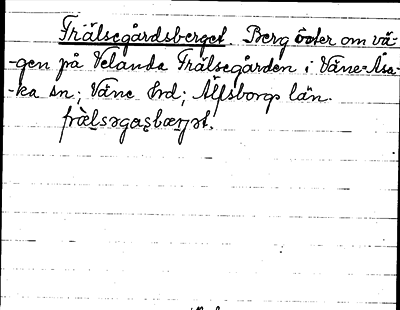 Frälsegårdsberget. Berg öster om vä-
-gen på Velanda Frälsegården i Väne-Åsa-
-ka sn; Väne hd; Älfsborgs län.
frä̀l̥səgaʂbærjət.